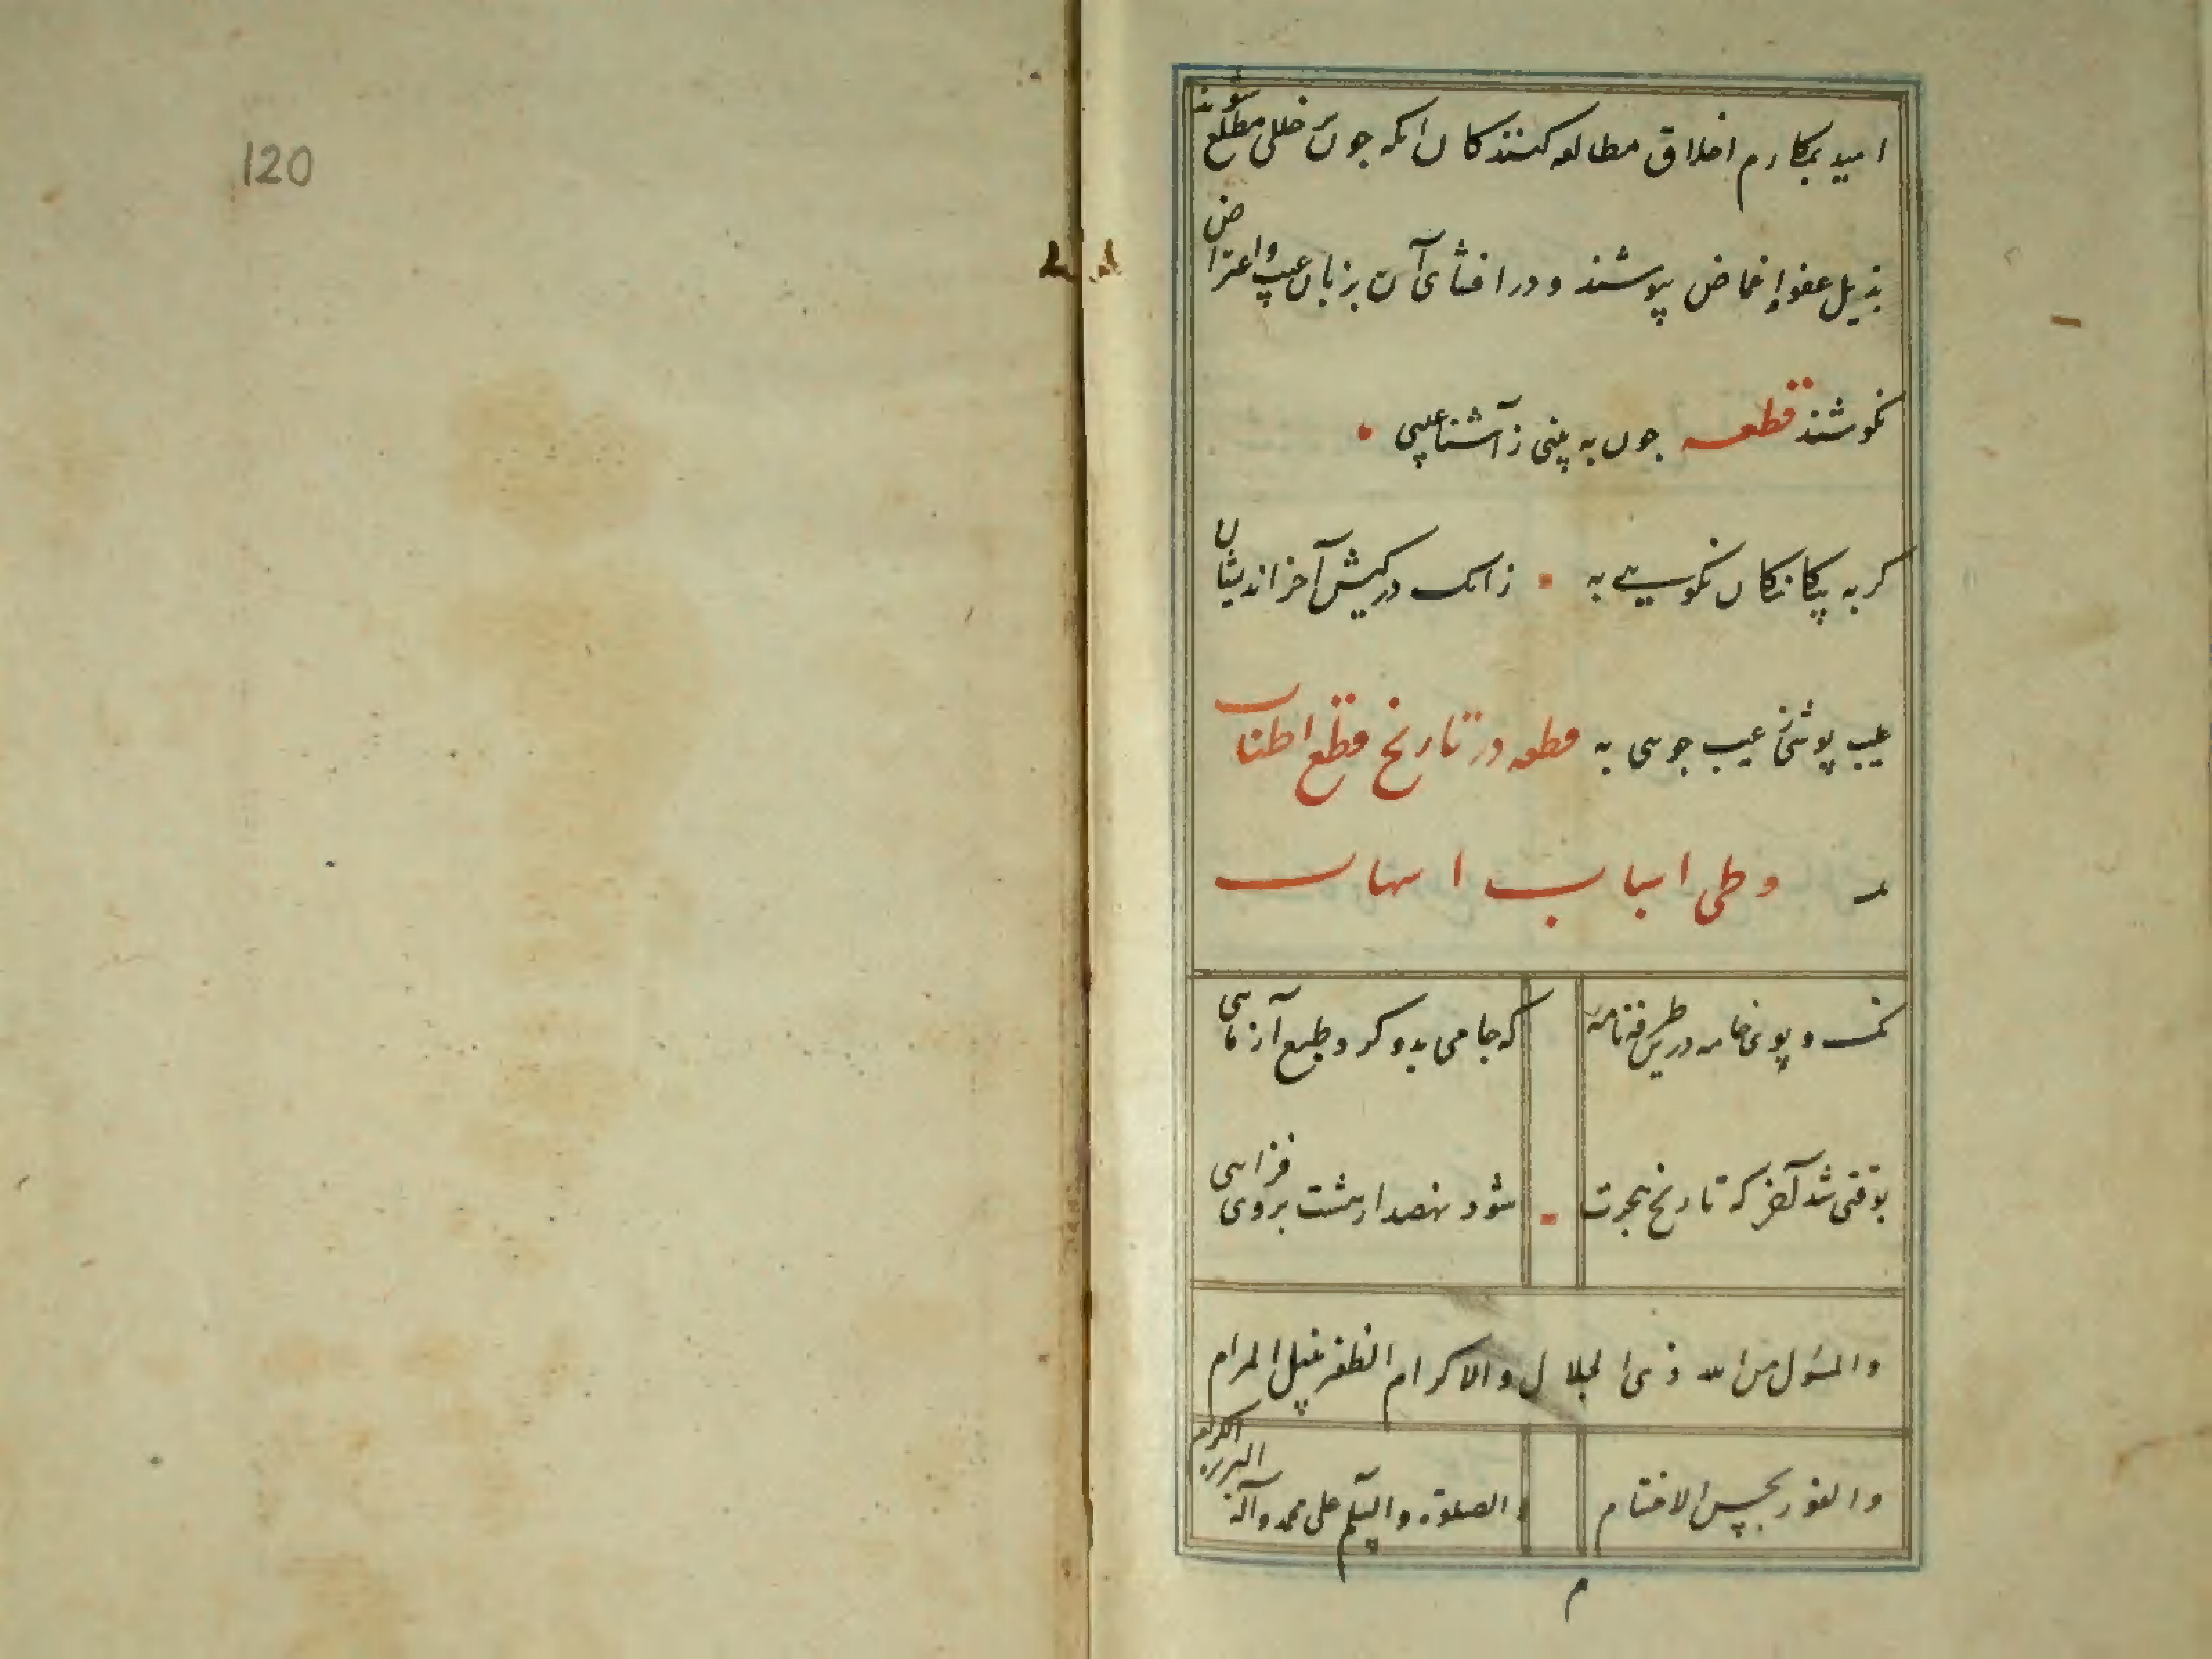 120
امید بمکارم اخلاق مطالعه کنندکان انکه چون خللی مطلع شوند
بذیل عفو و اغماض پوشند و در افشای آن بزبان عیب و اعتراض
نکوشند قطعه چون به بینی ز آشنا عیبی
کر به بیکانکان نکویی به زانک در کیش آخر اندیشان
عیب پوشی ز عیب جویی به قطعه در تاریخ قطع اطناب
و طی اسباب اسهاب
تک و پوی خامه در طرفه نامه که جامی بدو کرد طبع آزمایی
بوقتی شد آخر که تاریخ هجرت شود نهصد ار هشت بروی فزایی
والمسئول من الله ذی الجلال والاکرام الظفر بنیل المرام
والفوز بحسن الاختتام والصلوة والسلم علی محمد وآله البررة الکرام
م